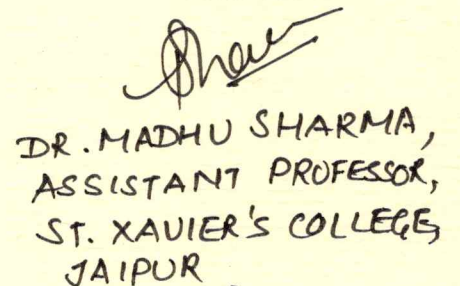 DR. MADHU SHARMA,
ASSISTANT PROFESSOR,
ST. XAVIER'S COLLEGE,
JAIPUR